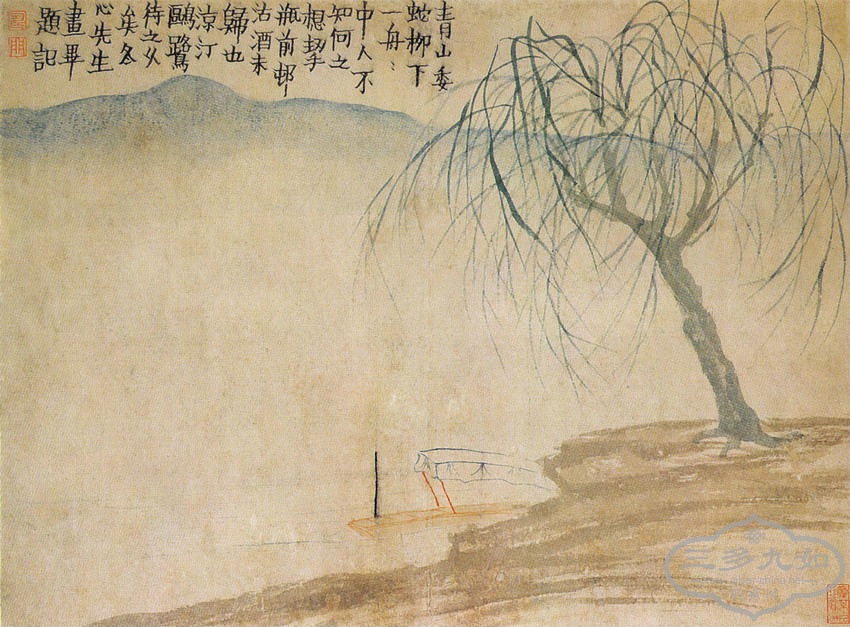 青山委
蛇柳下
一舟〻
中人不
知何之
想挈
瓶前邨
沽酒未
歸也
涼汀
鷗鷺
待之久
矣冬
心先生
畫畢
題記
三多九如